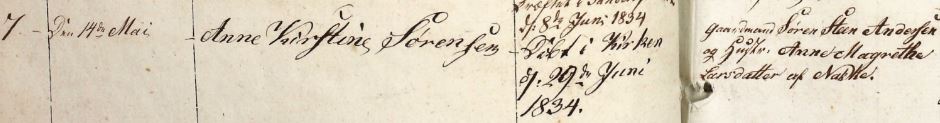 7. - Den 14de Mai - Anne Kirstine Sørensen
d. 8de Juni 1834
- Døbt i Kirken
d. 29de Juni
1834.
Gaardmand Søren Steen Andersen
og Hustr. Anne Magrethe
Larsdatter af